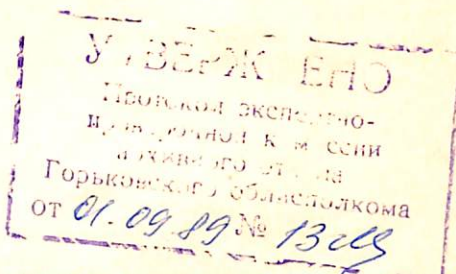 УТВЕРЖДЕНО
Протокол экспертно-
проверочной комиссии
архивного отдела
Горьковского облисполкома
от 01.09.89 № 13